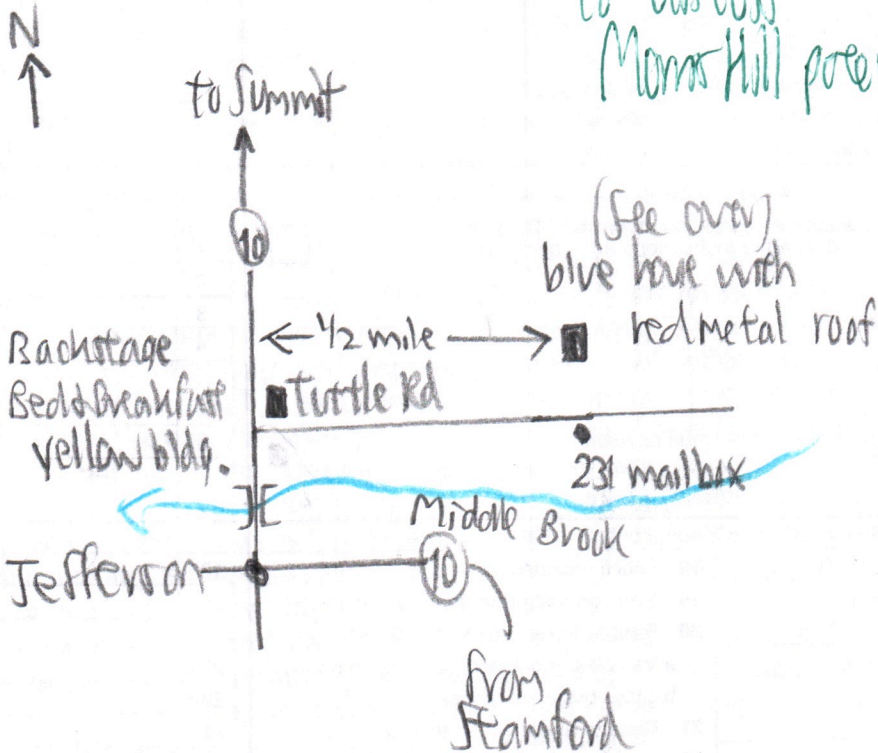 N
to discuss
Morris Hill
to Summit
10
(See over)
blue house with
red metal roof
1/2 mile
Backstage
Bed & Breakfast
yellow bldg.
Tuttle Rd
231 mailbox
Middle Brook
Jefferson
10
from
Stamford